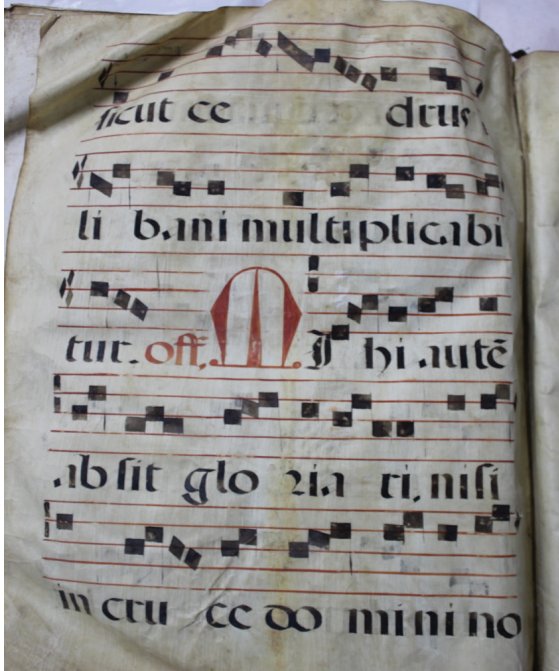 sicut ce drus
li bani multiplicabi
tur. off. M Ihi autē
ab sit glo ria ri, nisi
in cru ce do mini no